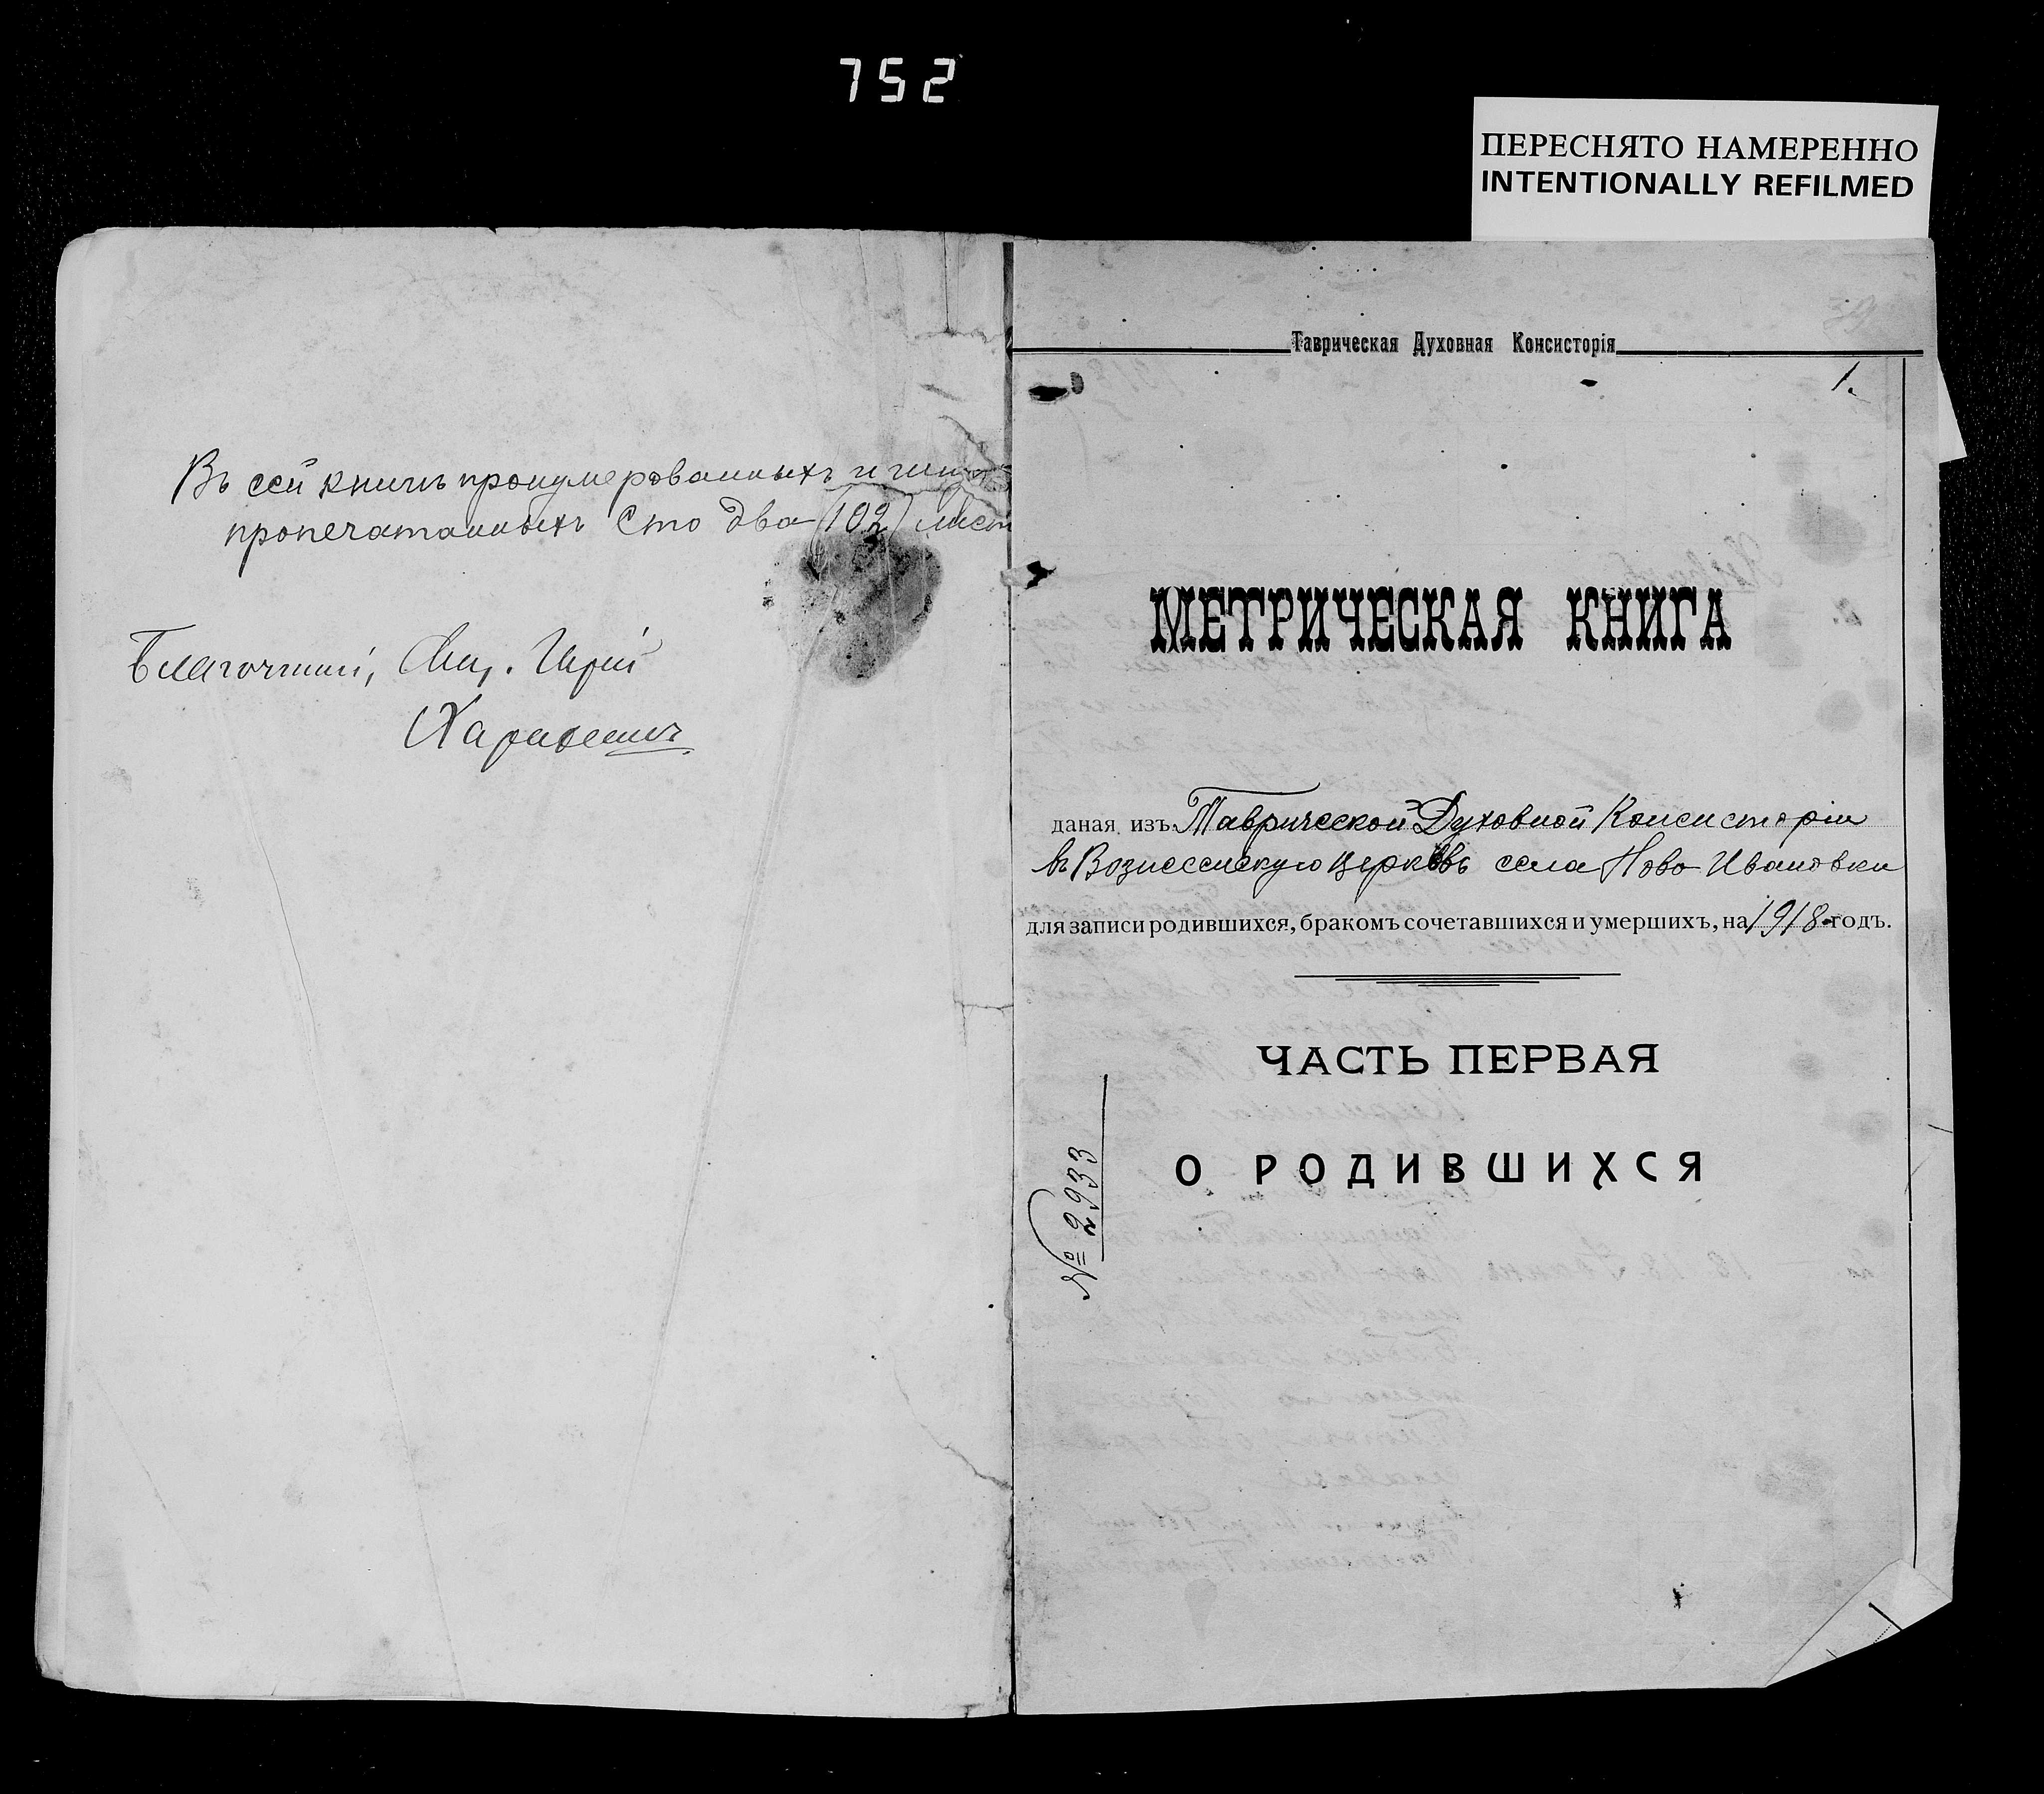 752
ПЕРЕСНЯТО НАМЕРЕННО
INTENTIONALLY REFILMED
Въ сей книгѣ пронумерованныхъ и
пропечатанныхъ Сто два (102) лист
Благочинный, Свящ.
Таврическая Духовная Консисторія
1.
МЕТРИЧЕСКАЯ КНИГА
даная изъ Таврической Духовной Консисторіи
въ Вознесенскую церковь села Ново-Ивановки
для записи родившихся, бракомъ сочетавшихся и умершихъ, на 1918 годъ.
ЧАСТЬ ПЕРВАЯ
О РОДИВШИХСЯ
№ 2933